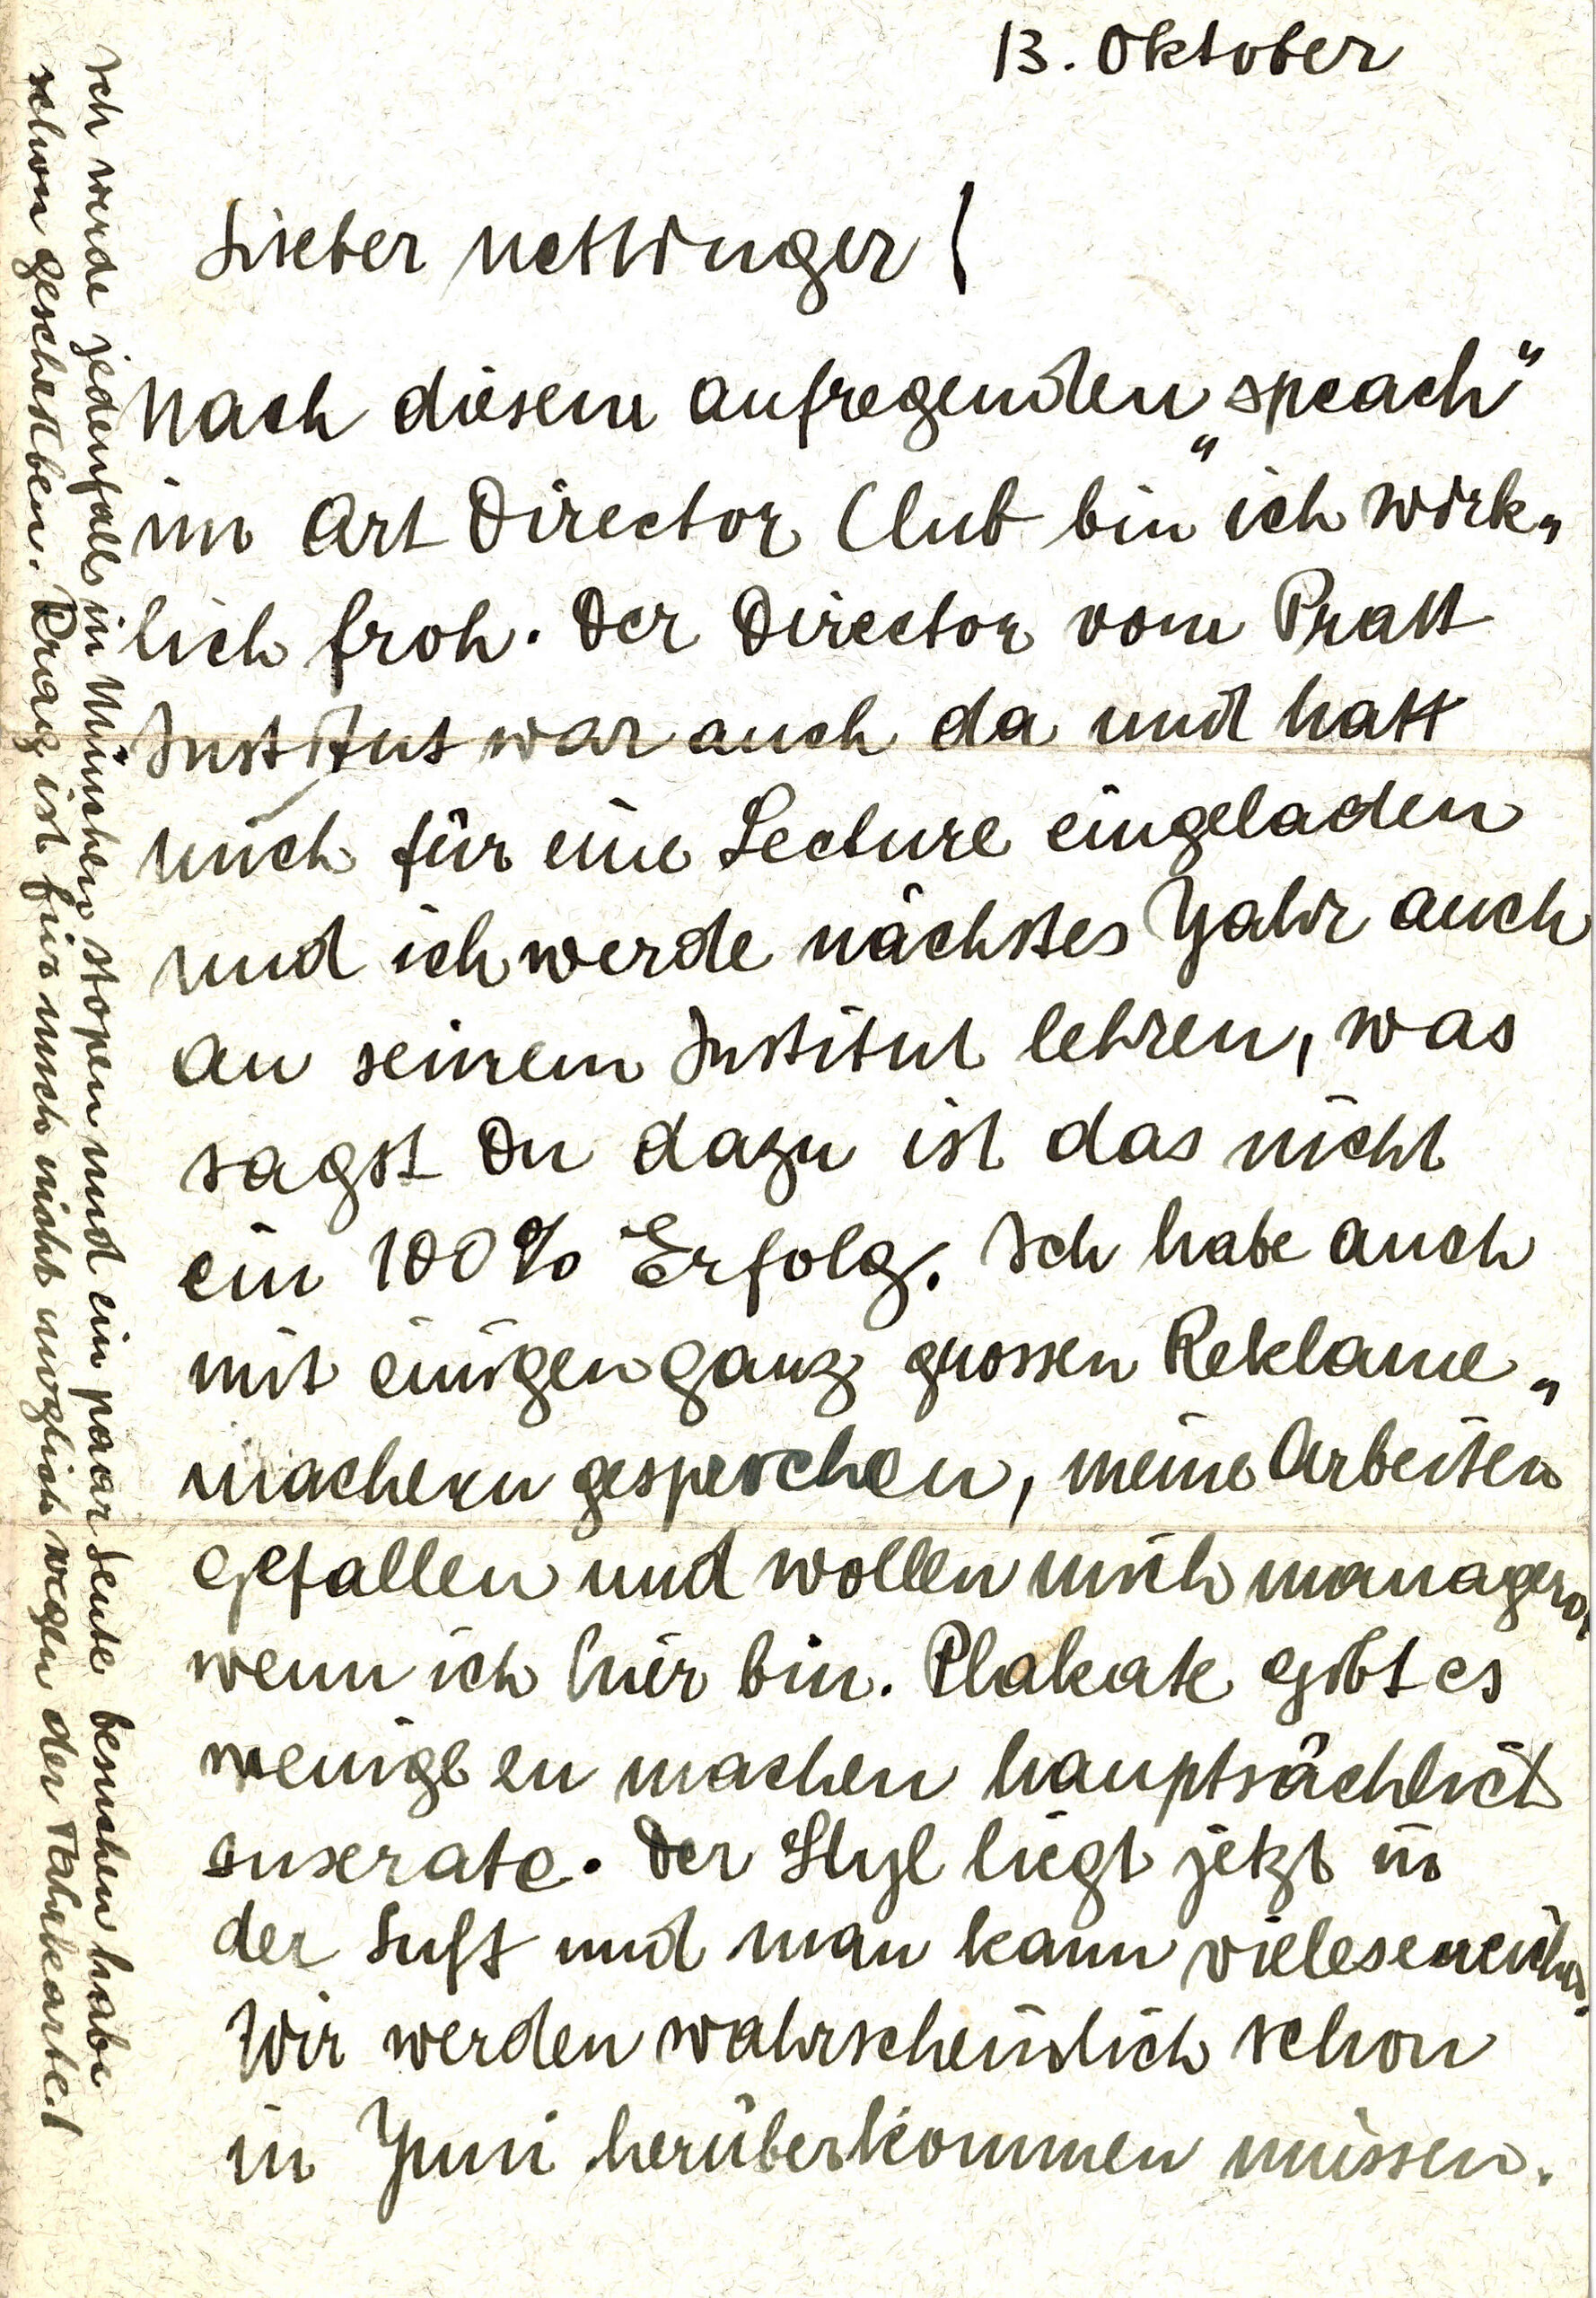 13. Oktober
Lieber Nettinger!
Nach diesem aufregenden „speach“
im Art Director Club bin ich wirk„
lich froh. Der Director vom Pratt
Institut war auch da und hatt
mich für eine Lecture eingeladen
und ich werde nächstes Yahr auch
an seinem Institut lehren, was
sagst Du dazu ist das nicht
ein 100% Erfolg. Ich habe auch
mit einigen ganz grossen Reklame„
machern gesperchen, meine Arbeiten
gefallen und wollen mich managen,
wenn ich hier bin. Plakate gibt es
wenig en machen hauptsächlich
inserate. Der Styl liegt jetzt in
der Luft und man kann vieles
Wir werden wahrscheinlich schon
in Yuni herüberkommen müssen.
Ich werde jedenfalls in München stopen und ein paar Leute besuchen habe
schon geschrieben. Prag ist für mich nicht möglich wegen der Fahrkarte!